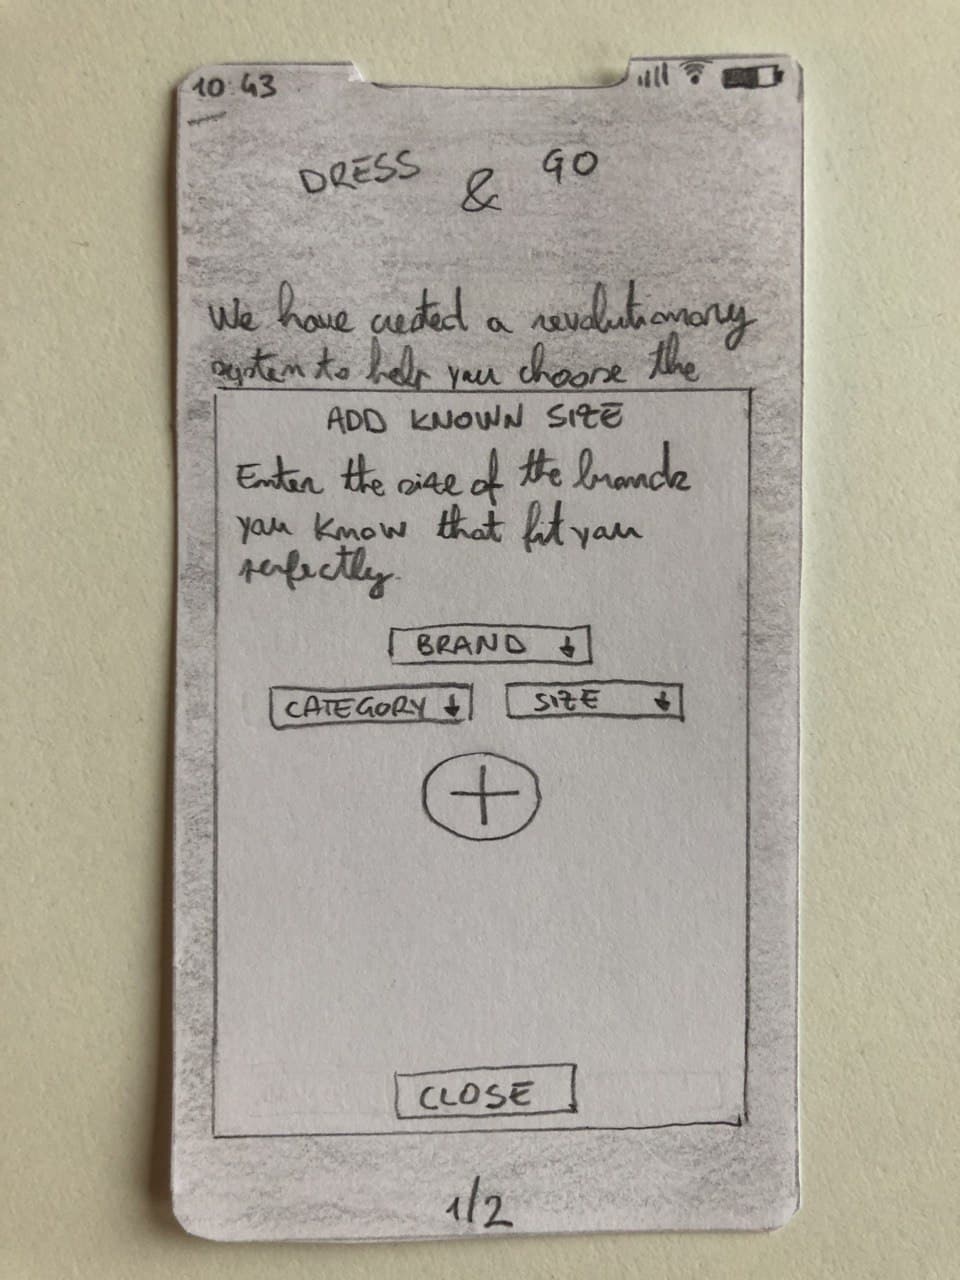 10:43
DRESS & GO
We have created a revolutionary
system to help you choose the
ADD KNOWN SIZE
Enter the size of the brands
you know that fit you
perfectly.
BRAND ↓
CATEGORY ↓ SIZE ↓
+
CLOSE
1/2